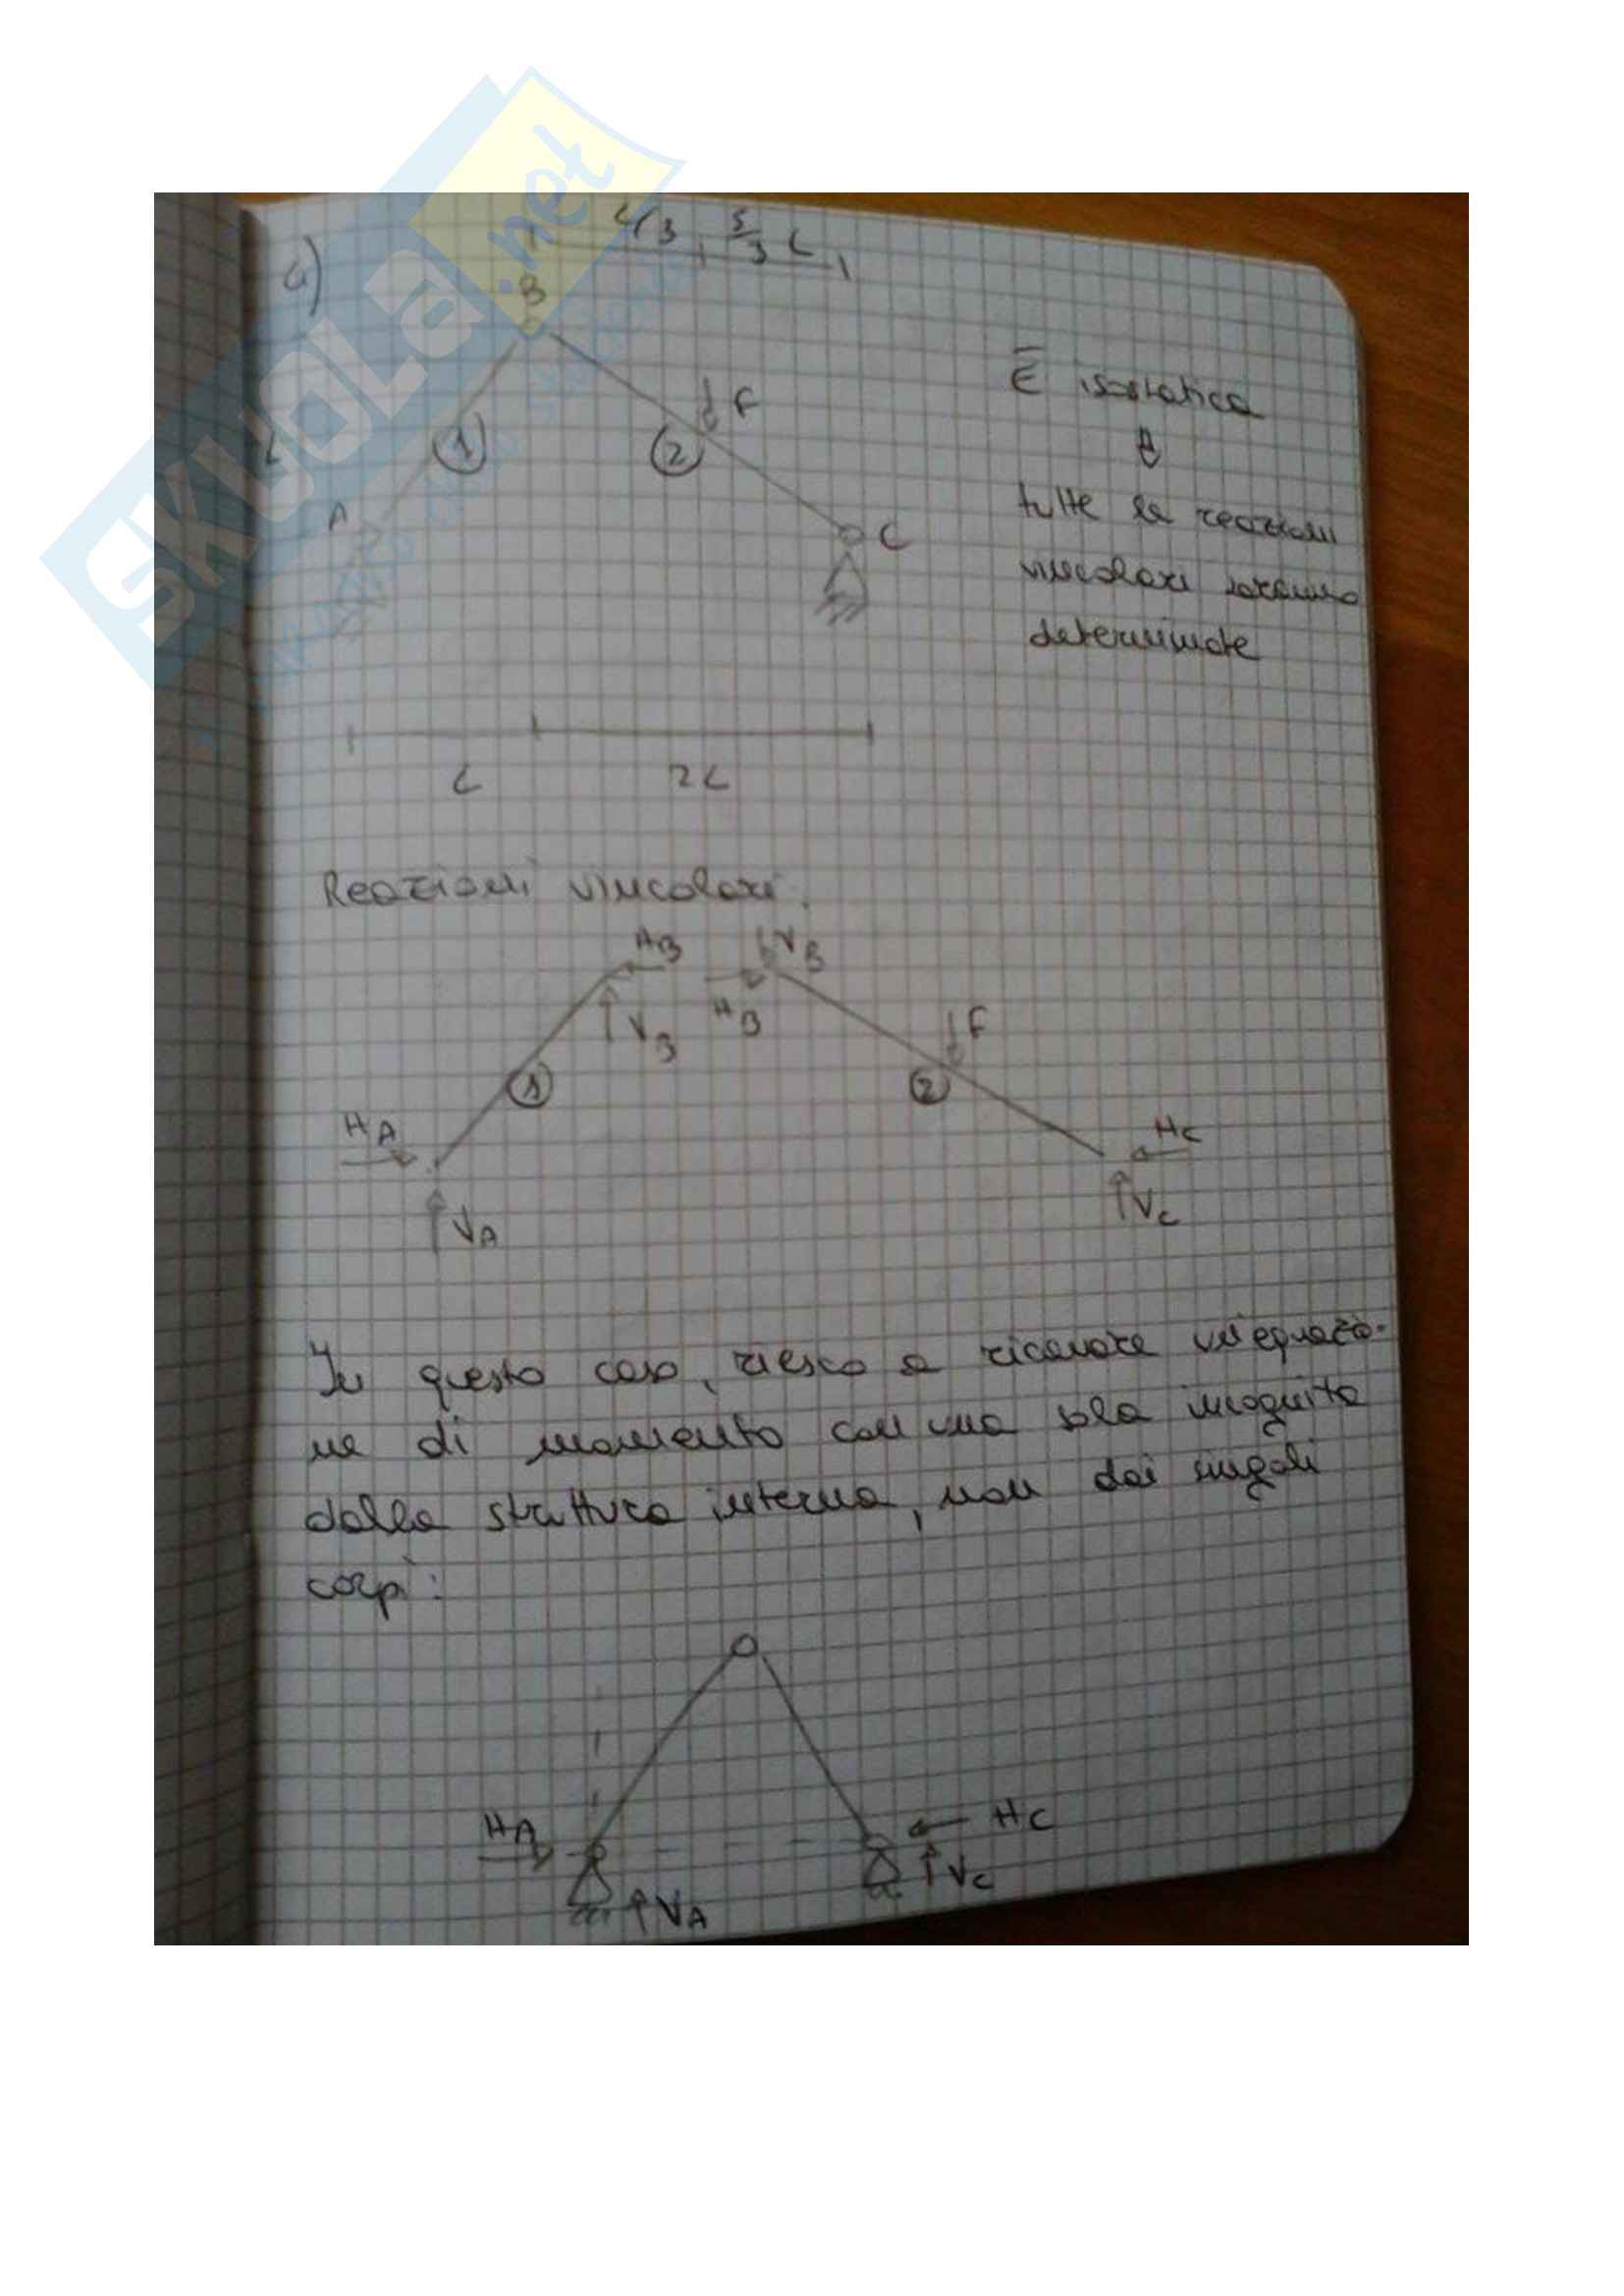 L/3 5/3 L
B
F
È isostatica
L
1
2
A
C
tutte le reazioni
vincolari saranno
determinate
L 2L
Reazioni vincolari.
HB VB
VB HB F
1 2
HA HC
VA VC
In questo caso, riesco a ricavare un'equazio-
ne di momento con una sola incognita
dalla struttura interna, non dai singoli
corpi:
HA HC
VA VC
SKUOLA.net